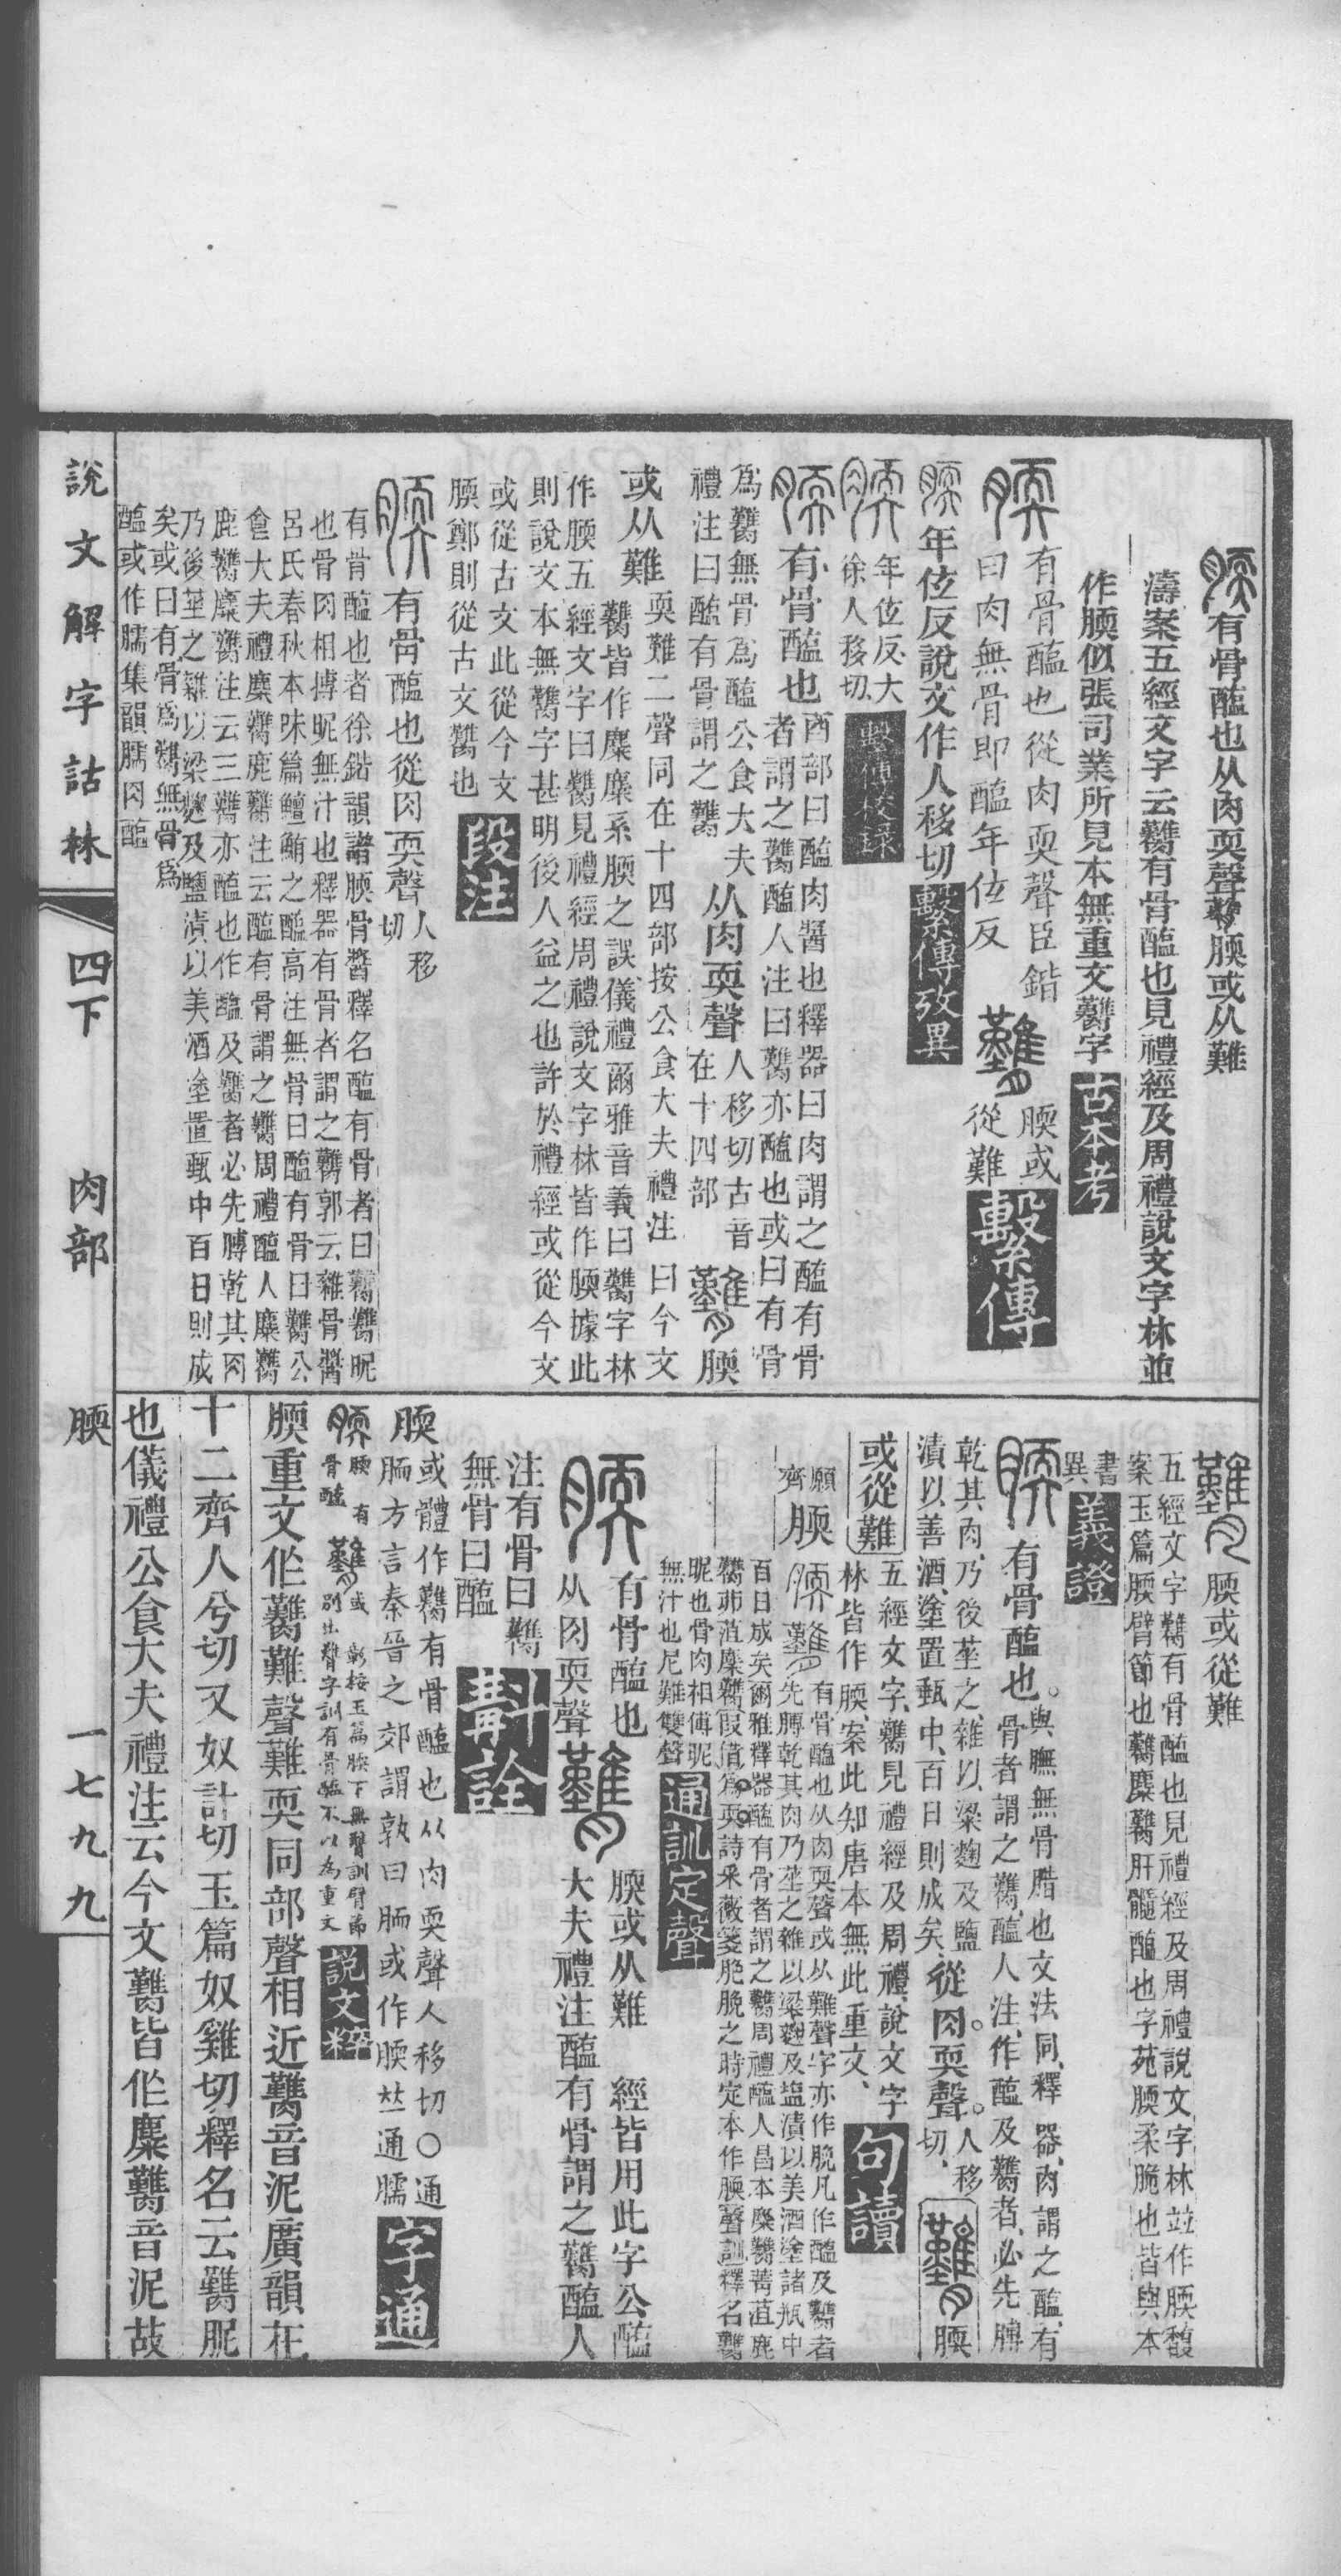 腝有骨醢也从肉耎聲𦠆腝或从難
濤案五經文字云臡有骨醢也見禮經及周禮說文字林並
作腝似張司業所見本無重文臡字古本考
腝有骨醢也從肉耎聲臣鍇
曰肉無骨即醢年伭反
臡腝或
從難繫傳
腝年伭反說文作人移切繫傳攷異
腝年伭反大
徐人移切繫傳校錄
腝有骨醢也酉部曰醢肉醬也釋器曰肉謂之醢有骨
者謂之臡醢人注曰臡亦醢也或曰有骨
爲臡無骨爲醢公食大夫
禮注曰醢有骨謂之臡从肉耎聲人移切古音
在十四部臡腝
或从難耎難二聲同在十四部按公食大夫禮注曰今文
臡皆作麋麋系腝之誤儀禮爾雅音義曰臡字林
作腝五經文字曰臡見禮經周禮說文字林皆作腝據此
則說文本無臡字甚明後人益之也許於禮經或從今文
或從古文此從今文
腝鄭則從古文臡也段注
腝有骨醢也從肉耎聲人移
切
有骨醢也者徐鍇韻譜腝骨醬釋名醢有骨者曰臡臡昵
也骨肉相搏昵無汁也釋器有骨者謂之臡郭云雜骨醬
呂氏春秋本味篇鱣鮪之醢高注無骨曰醢有骨曰臡公
食大夫禮麋臡鹿臡注云醢有骨謂之臡周禮醢人麋臡
鹿臡麇臡注云三臡亦醢也作醢及臡者必先膊乾其肉
乃後莝之雜以梁麴及鹽漬以美酒塗置甄中百日則成
矣或曰有骨爲臡無骨爲
醢或作臑集韻臑肉醢
臡腝或從難
五經文字臡有骨醢也見禮經及周禮說文字林竝作腝馥
案玉篇腝臂節也臡麋臡肝髓醢也字苑腝柔脆也皆與本
書
異義證
腝有骨醢也。與膴無骨腊也文法同、釋器、肉謂之醢、有
骨者謂之臡、醢人注、作醢及臡者、必先膊
乾其肉、乃後莝之、雜以梁麴及鹽
漬以善酒、塗置甄中、百日則成矣、從肉耎聲。人移
切、臡腝
或從難五經文字、臡見禮經及周禮、說文字
林皆作腝、案此知唐本無此重文、句讀
願
齊腝腝臡有骨醢也从肉耎聲或从難聲字亦作脕凡作醢及臡者
先膊乾其肉乃莝之雜以梁麴及塩漬以美酒塗諸瓶中
百日成矣爾雅釋器醢有骨者謂之臡周禮醢人昌本麋臡菁菹鹿
臡茆菹麇臡假借爲耎詩采薇箋脃脕之時定本作腝聲訓釋名臡
昵也骨肉相傅昵
無汁也尼難雙聲通訓定聲
腝有骨醢也
从肉耎聲臡腝或从難　經皆用此字公
大夫禮注醢有骨謂之臡醢人
注有骨曰臡
無骨曰醢斠詮
腝或體作臡有骨醢也从肉耎聲人移切〇通
胹方言秦晉之郊謂孰曰胹或作腝竝通臑字通
腝腝有
骨醢臡或彰按玉篇腝下無臡訓臂節
別出臡字訓有骨醢不以為重文說文粹
腝重文作臡難聲難耎同部聲相近臡音泥廣韻在
十二齊人兮切又奴計切玉篇奴雞切釋名云臡胒
也儀禮公食大夫禮注云今文臡皆作麋臡音泥故
說文解字詁林　四下　肉部　腝　一七九九